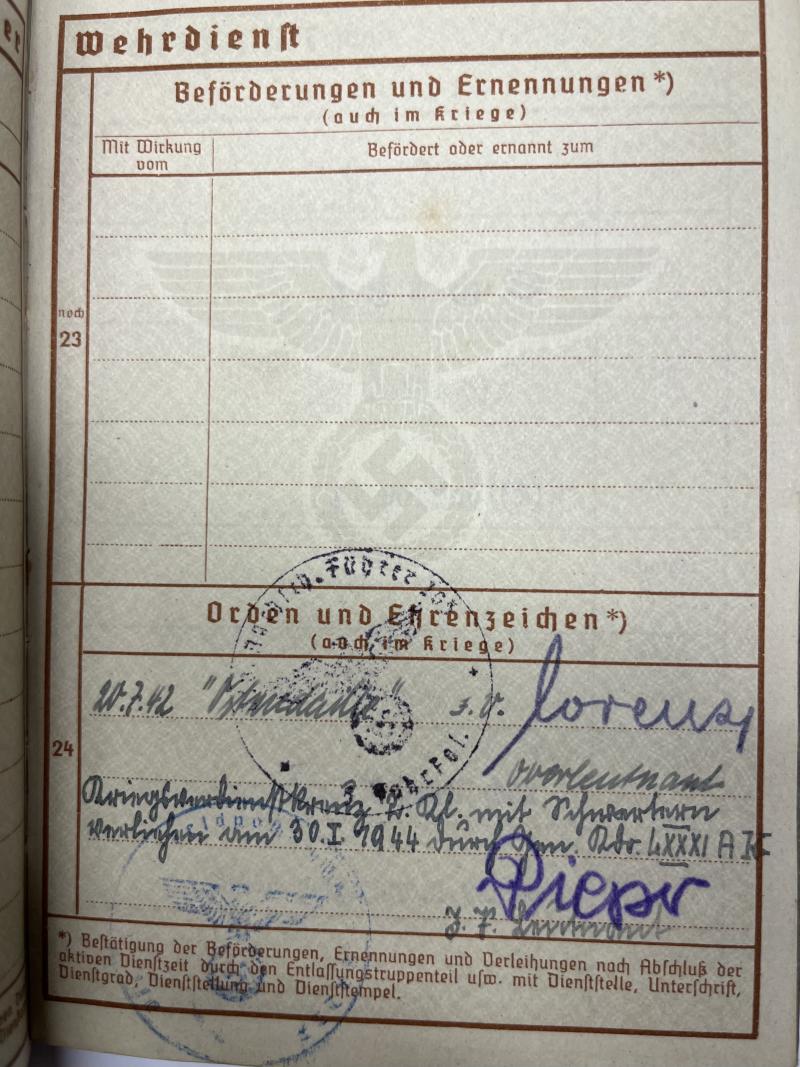 Wehrdienst
Beförderungen und Ernennungen *)
(auch im Kriege)
Mit Wirkung vom
Befördert oder ernannt zum
noch
23
Orden und Ehrenzeichen *)
(auch im Kriege)
24
20.7.42 "Ostmedaille" z.V. Lorenz
Oberleutnant
Kriegsverdienstkreuz 2. Kl. mit Schwertern
verliehen am 30.I.1944 durch Gen. Kdo. LXXXI A K
Pieper
Leutnant
*) Bestätigung der Beförderungen, Ernennungen und Verleihungen nach Abschluß der
aktiven Dienstzeit durch den Entlassungstruppenteil usw. mit Dienststelle, Unterschrift,
Dienstgrad, Dienststellung und Dienststempel.